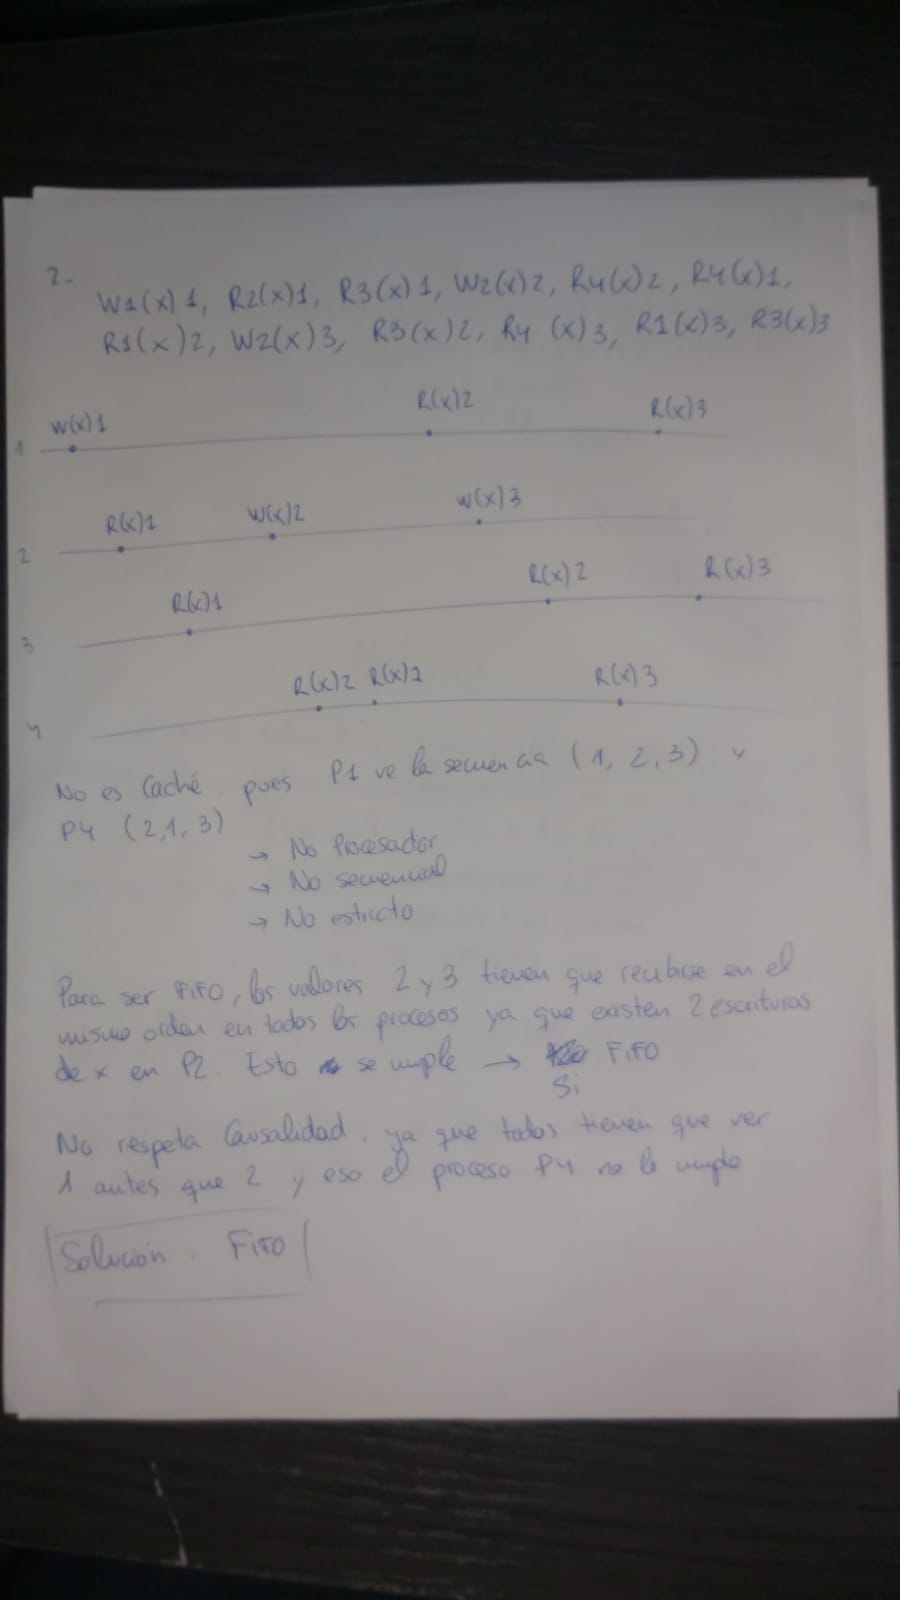 2-
W1(x)1, R2(x)1, R3(x)1, W2(x)2, R4(x)2, R4(x)1,
R1(x)2, W2(x)3, R3(x)2, R4 (x)3, R1(x)3, R3(x)3
1 W(x)1 R(x)2 R(x)3
2 R(x)1 W(x)2 W(x)3
3 R(x)1 R(x)2 R(x)3
4 R(x)2 R(x)1 R(x)3
No es Caché, pues P1 ve la secuencia (1, 2, 3) y
P4 (2,1,3)
→ No Procesador
→ No secuencial
→ No estricto
Para ser FIFO, los valores 2 y 3 tienen que recibirse en el
mismo orden en todos los procesos ya que existen 2 escrituras
de x en P2. Esto se cumple → FIFO
Si
No respeta Causalidad, ya que todos tienen que ver
1 antes que 2 y eso el proceso P4 no lo cumple
Solución. FIFO